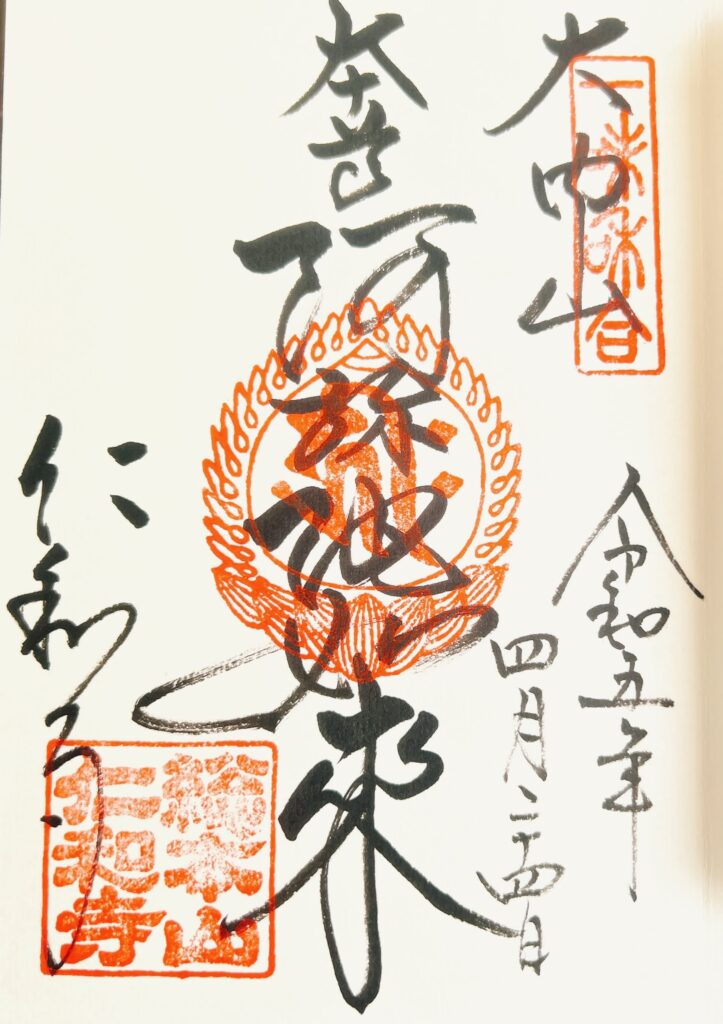 大内山
一味和合
令和五年
四月二十四日
本尊
阿弥陀如来
仁和寺
総本山
仁和寺